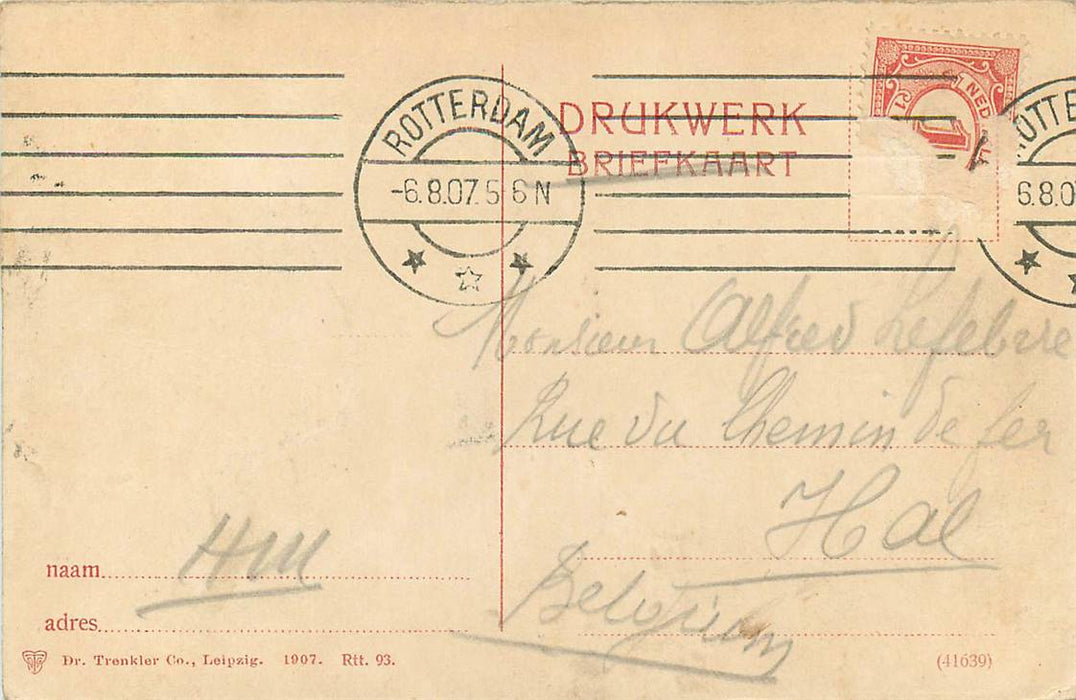 ROTTERDAM
-6.8.07. 5 6 N
DRUKWERK
BRIEFKAART
NED
1
OTTE
6.8.0
Monsieur Alfred Lefebvre
Rue du Chemin de fer
Hal
Belgium
naam
adres
Dr. Trenkler Co., Leipzig. 1907. Rtt. 93.
(41639)